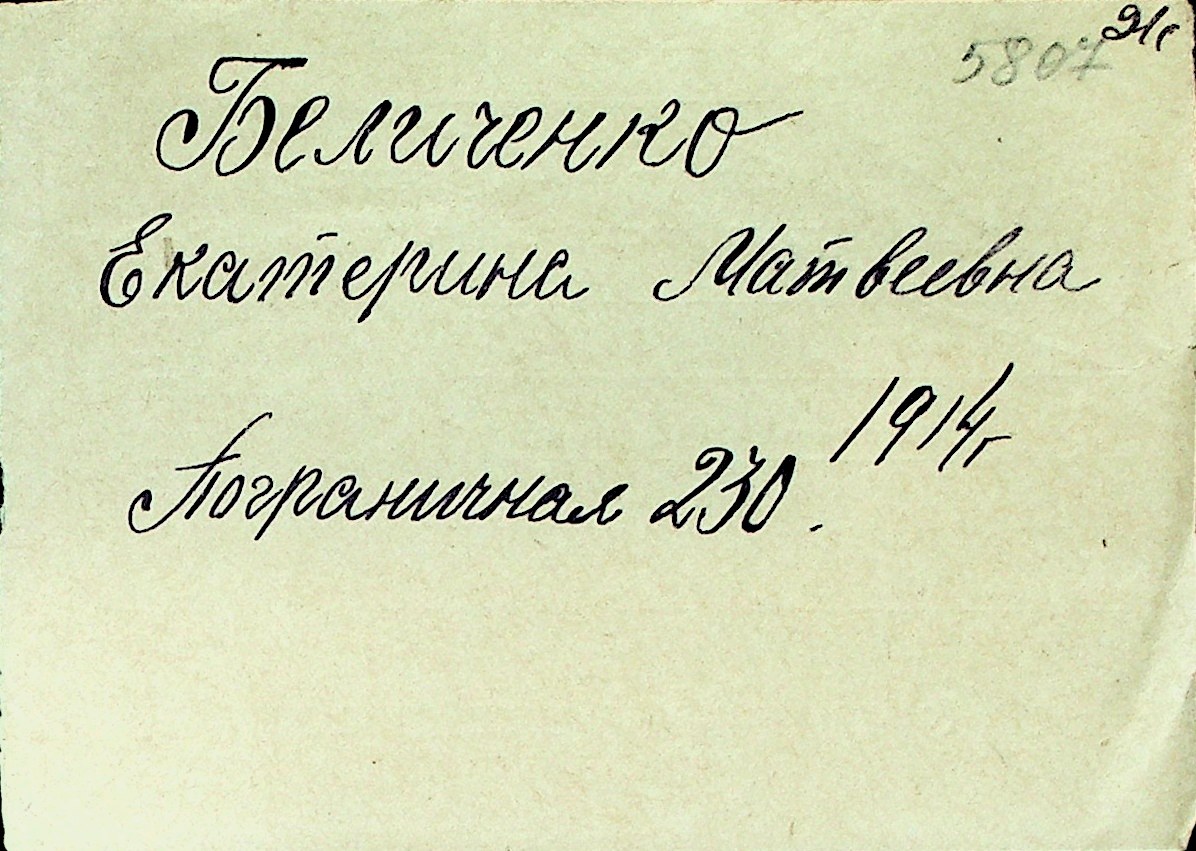 5807
Беличенко
Екатерина Матвеевна
1914г
Пограничная 230.